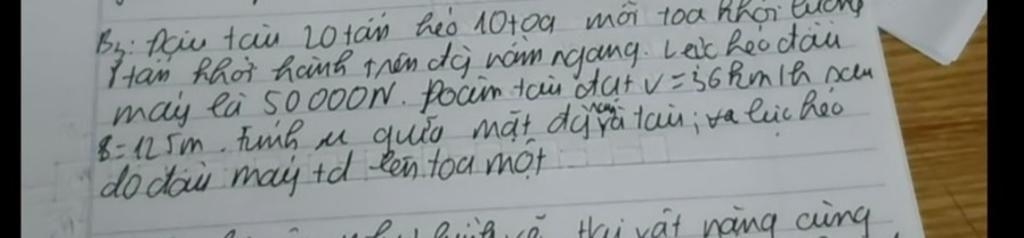 B3: Đầu tàu 20 tấn kéo 10 toa mỗi toa khối lượng
1 tấn khởi hành trên đg nằm ngang. Lực kéo đầu
máy là 50000N. Đoàn tàu đạt v=36km/h sau
s=125m. Tính μ giữa mặt đg ray và tàu; và lực kéo
do đầu máy td lên toa một
Hai vật nặng cùng